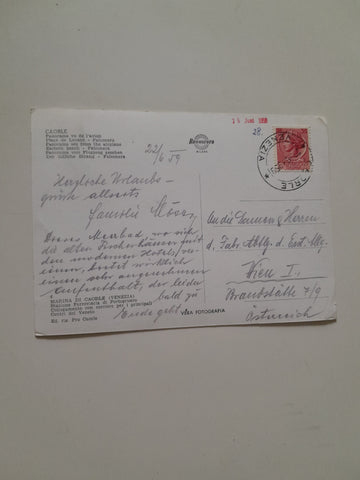 CAORLE
Panorama vu de l'avion
Plage de Levant - Panorama
Panorama seen from the airplane
Eastern beach - Panorama
Panorama vom Flugzeug gesehen
Der östliche Strand - Panorama
22/6 59
Herzliche Urlaubs-
grüße allseits
Familie
Dieses Meerbad, wo sich
die alten Fischerhäuser mit
den modernen Hotels
einen, bietet wirklich
einen sehr angenehmen
Aufenthalt, der leider
bald zu
Ende geht
4
MARINA DI CAORLE (VENEZIA)
Stazione Ferroviaria di Portogruaro
Collegamento con corriere per i principali
Centri del Veneto
Ed. ris. Pro Caorle
VERA FOTOGRAFIA
28.
VENEZIA
An die Damen u Herren
d. Fahr. Abtlg. d. Öst.
Wien I.
Brandstätte 7/9
Österreich